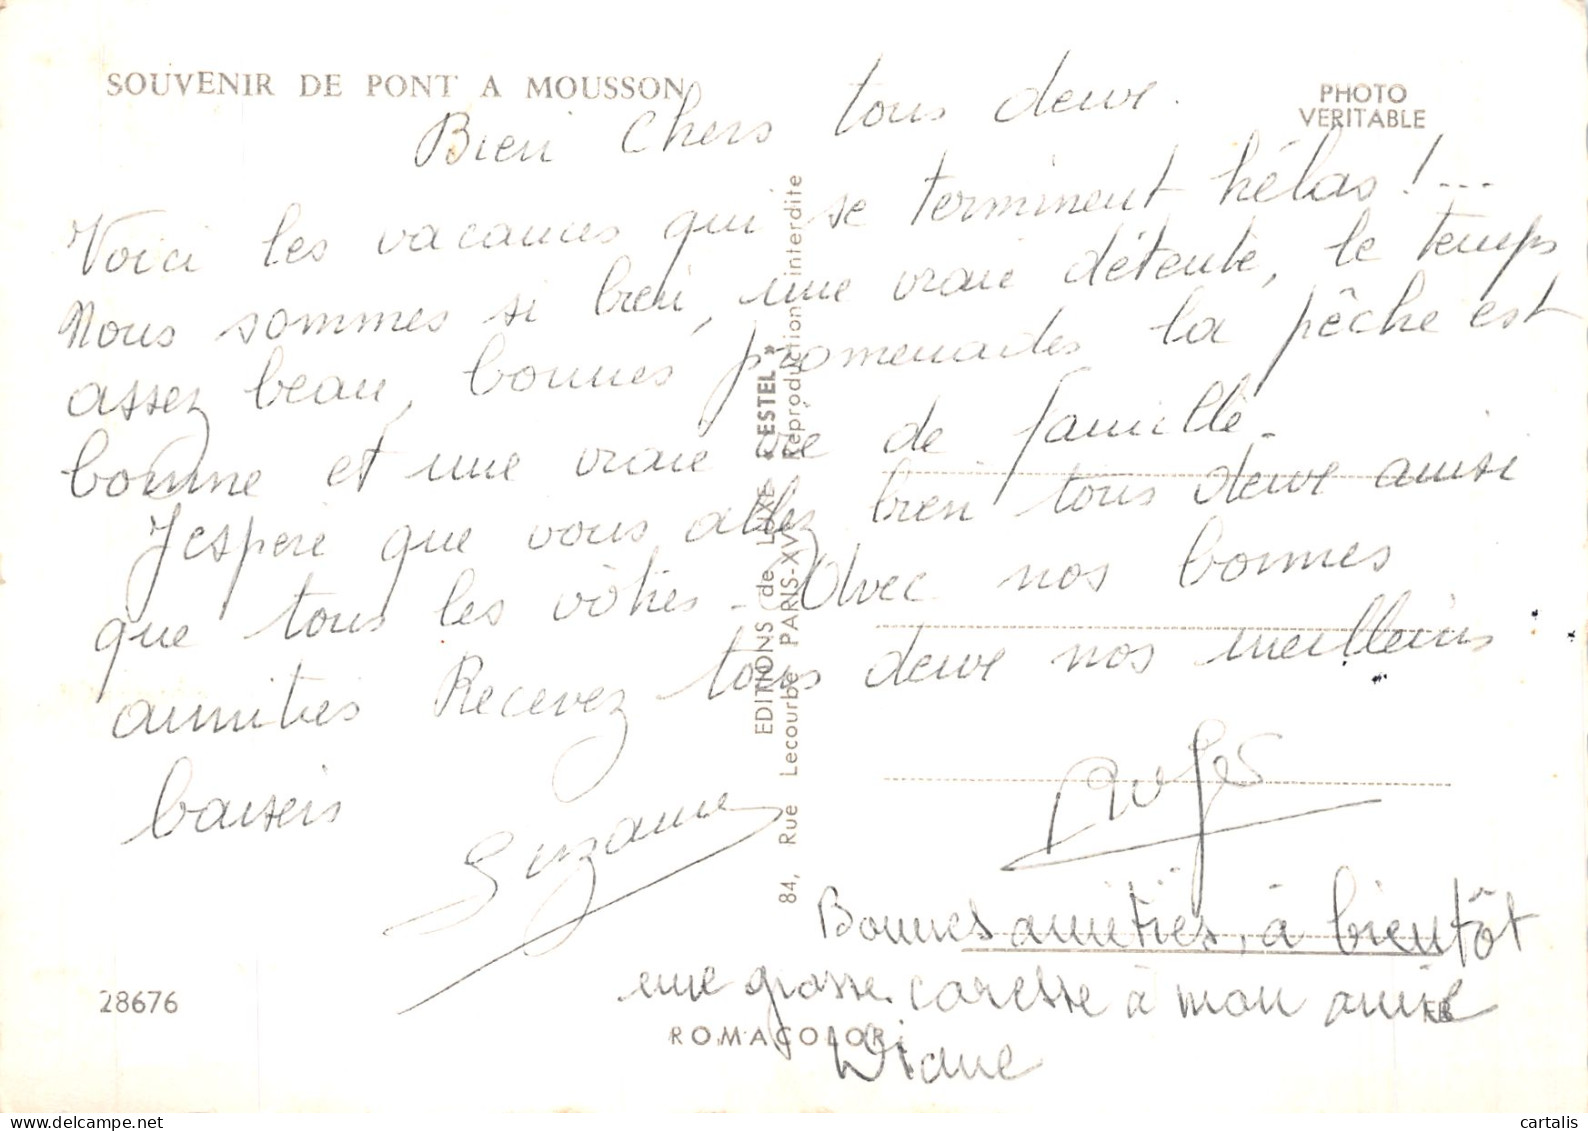 SOUVENIR DE PONT A MOUSSON
PHOTO
VERITABLE
Bien Chers tous deux.
Voici les vacances qui se terminent hélas!...
Nous sommes si bien, une vraie détente, le temps
assez beau, bonnes promenades la pêche est
bonne et une vraie vie de famille.
J'espère que vous allez bien tous deux ainsi
que tous les vôtres. Avec nos bonnes
amitiés Recevez tous deux nos meilleurs
baisers
Suzanne
Roger
Bonnes amitiés, à bientôt
une grosse caresse à mon amie
Diane
EDITIONS de LUXE « ESTEL »
84, Rue Lecourbe PARIS-XV Reproduction interdite
28676
ROMACOLOR
cartalis